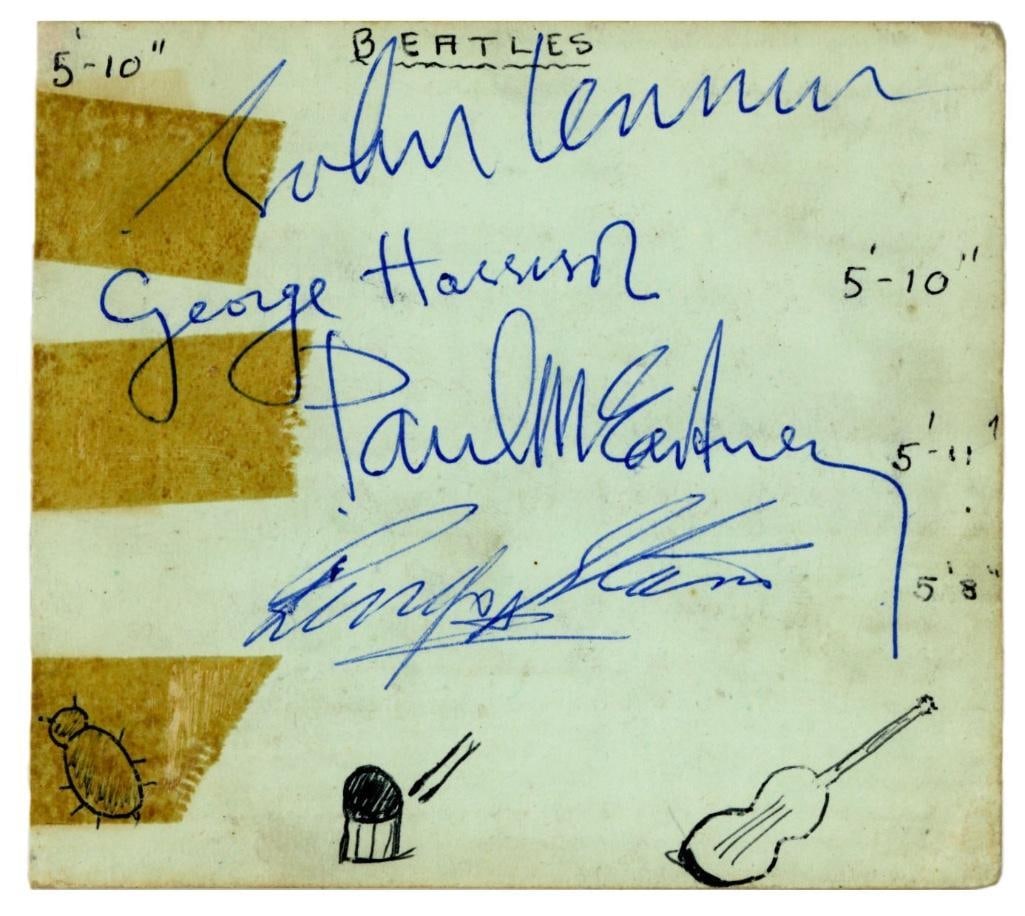 5'-10"
BEATLES
John Lennon
George Harrison
5'-10"
Paul McCartney
5'-11"
Ringo Starr
5'8"